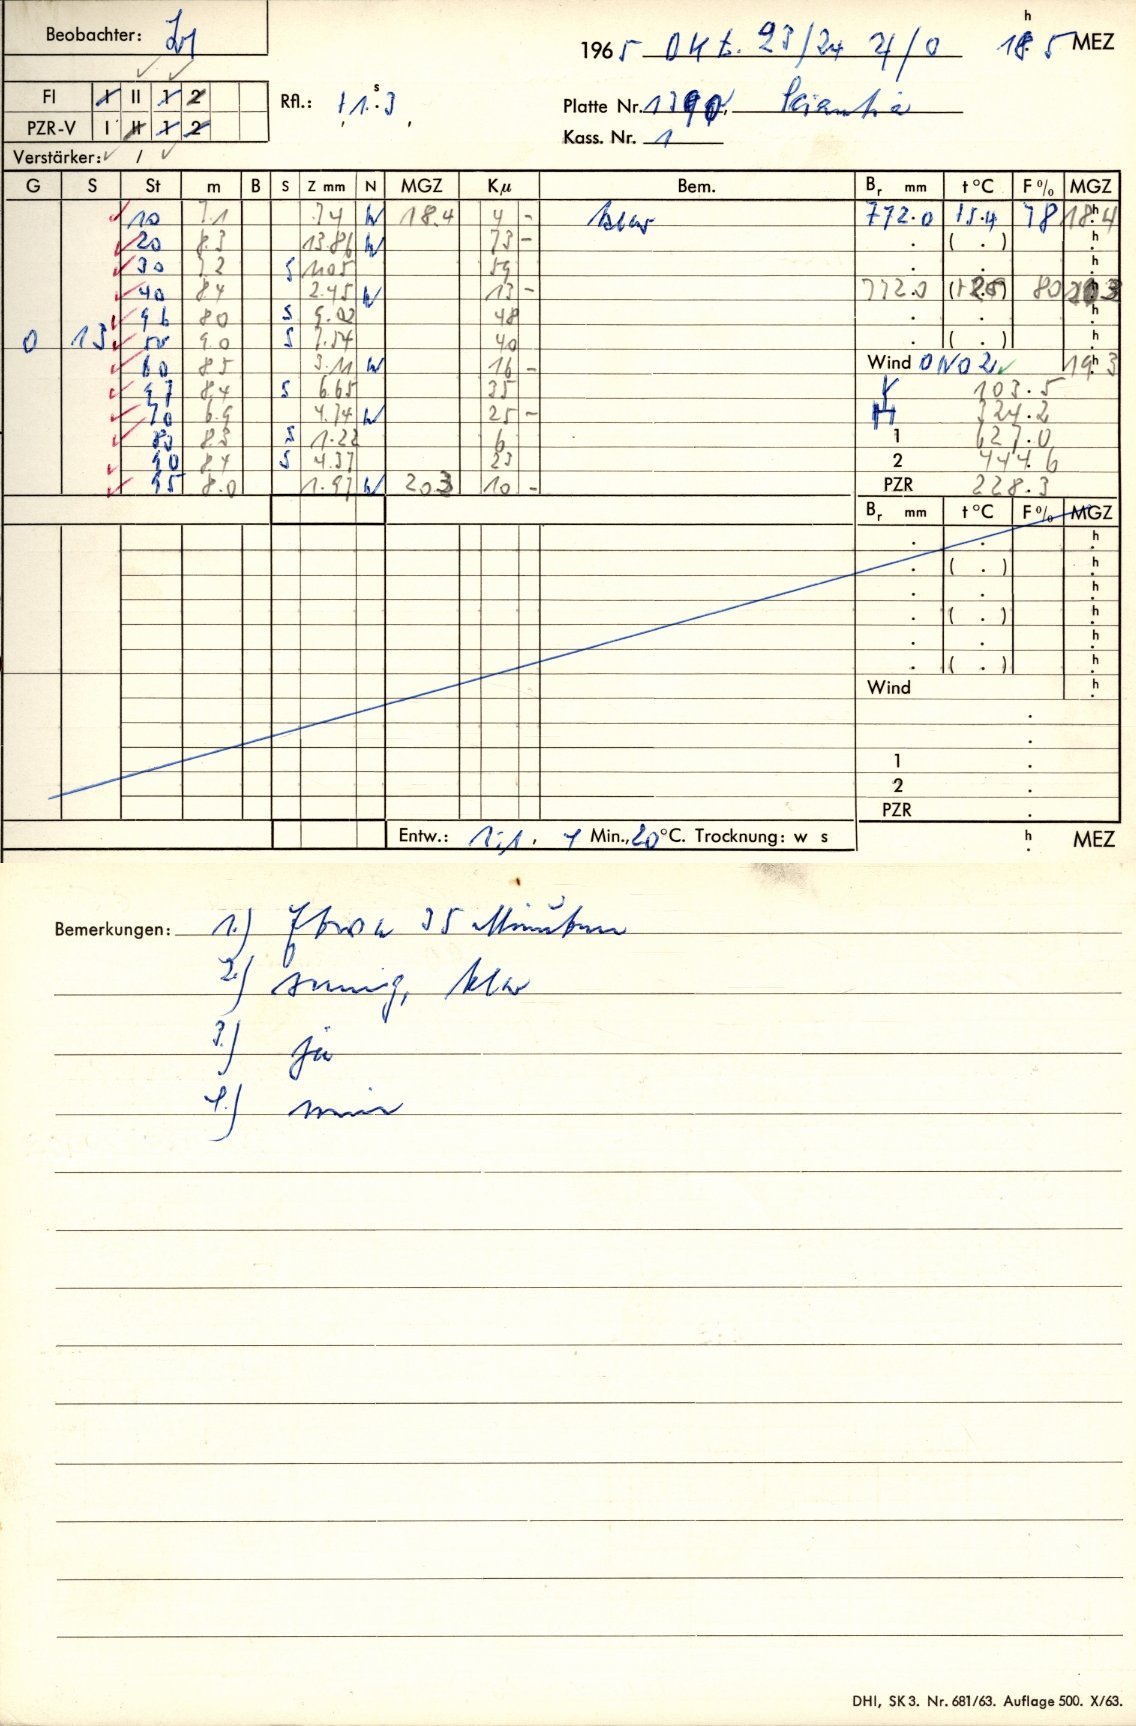 Beobachter:
1965 Okt. 23/24 h MEZ
FI I II 1 2
PZR-V I II 1 2
Rfl.: +1.s3
Platte Nr. Scientia
Kass. Nr. 1
Verstärker: /
G S St m B S Z mm N MGZ Kµ Bem. Br mm t °C F % MGZ
10 7.1 .74 N 18.4 4 - klar 772.0 +5.4 78 18.h4
20 8.3 13.86 N 73 - . ( . ) h
30 7.2 S 11.05 59 . . h
40 8.4 2.45 N 13 - 772.0 80
96 8.0 S 9.02 48 . . h
0 13 50 9.0 S 7.54 40 . ( . ) h
60 8.5 3.11 N 16 - Wind ONO 2 19.h3
97 8.4 S 6.65 35 103.5
70 6.9 4.74 N 25 - 324.2
80 8.3 S 1.22 6 1 627.0
90 8.4 S 4.37 23 2 444.6
95 8.0 1.97 N 20.3 10 - PZR 228.3
Br mm t °C F % MGZ
. . h
. ( . ) h
. . h
. ( . ) h
. . h
. ( . ) h
Wind h
.
.
1 .
2 .
PZR .
Entw.: 1:1, 4 Min., 20 °C. Trocknung: w s h MEZ
Bemerkungen: 1.) Etwa 35 Minuten
2.) sonnig, klar
3.) ja
4.) nein
DHI, SK 3. Nr. 681/63. Auflage 500. X/63.